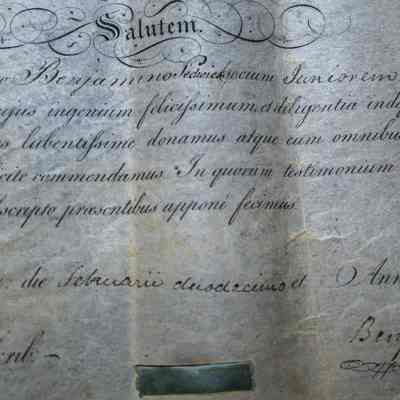 Salutem.
Benjamino socium Juniorem
ingenium felicissimum, et diligentia
lubentissime donamus atque eum omnibus
commendamus. In quorum testimonium
præsentibus apponi fecimus
die Februarii duodecimo et Ann
Ben